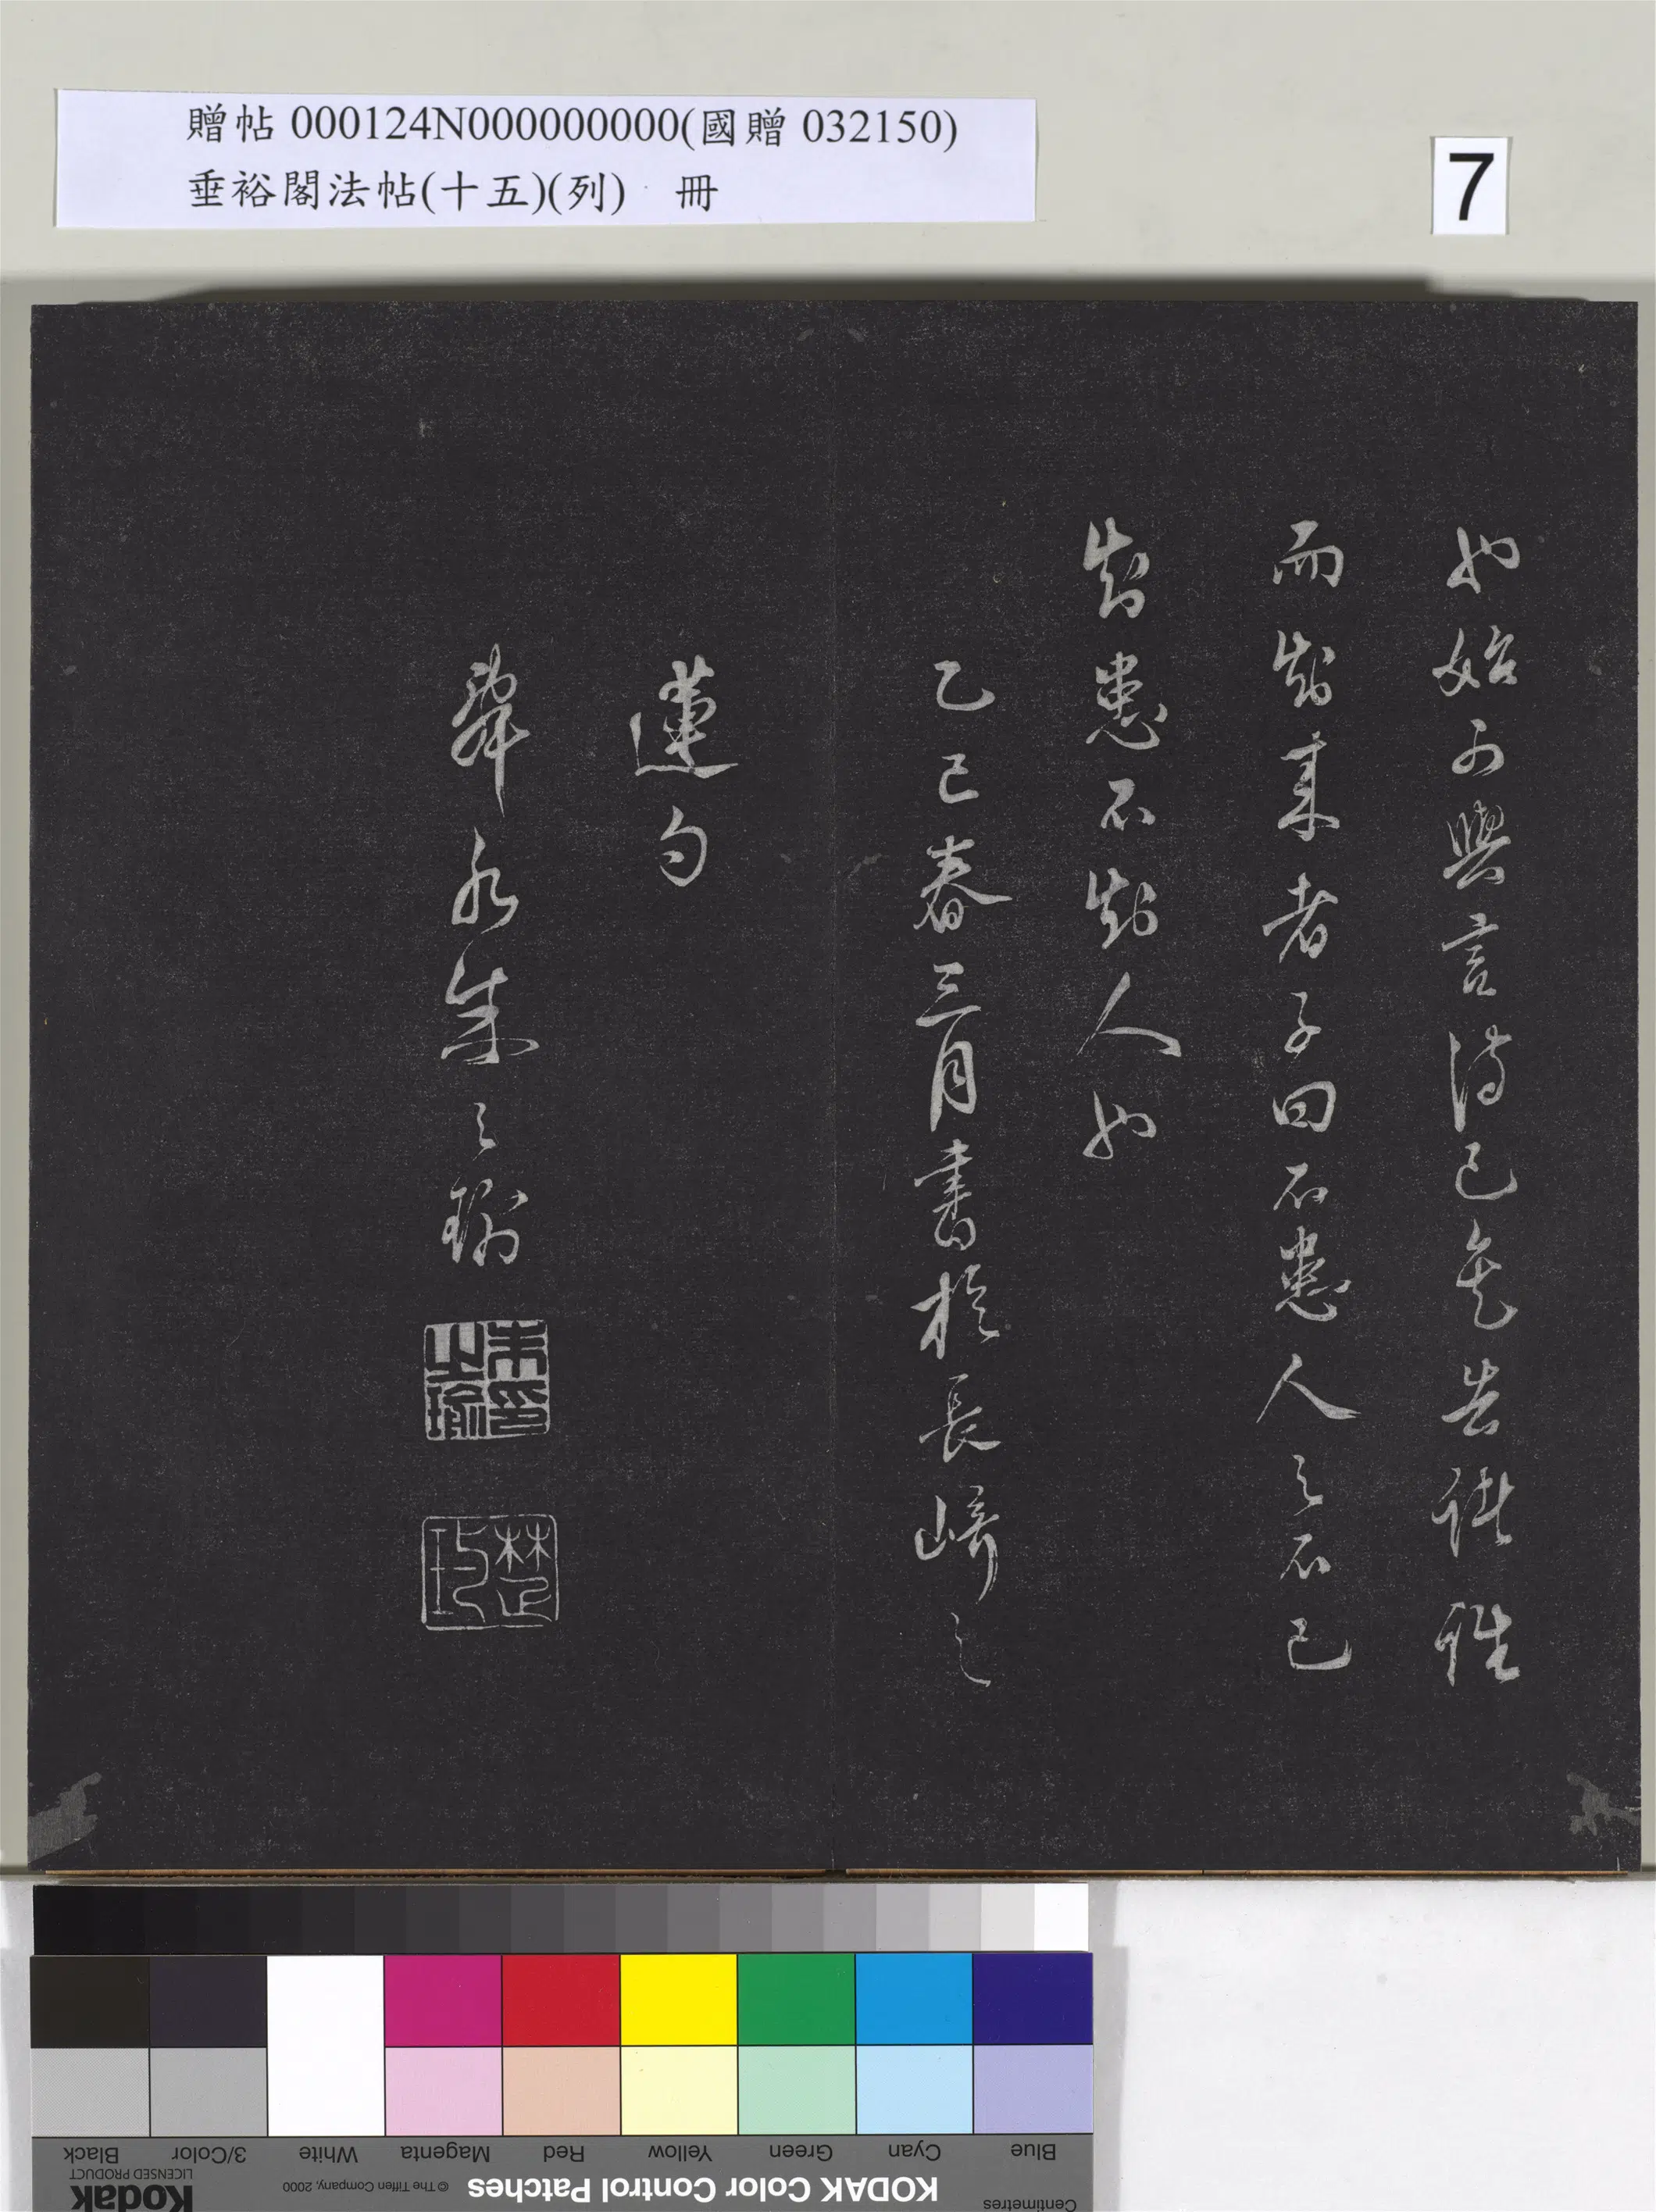 贈帖 000124N000000000(國贈 032150)
垂裕閣法帖(十五)(列) 冊
7
也始可與言詩已矣告諸往
而知來者子曰不患人之不己
知患不知人也
乙巳春三月書於長崎之
蓮勺
舜水朱之瑜
朱印之瑜
楚璵
Blue
Cyan
Green
Yellow
Red
Magenta
White
3/Color
Black
Centimetres
KODAK Color Control Patches
© The Tiffen Company, 2000
Kodak
LICENSED PRODUCT